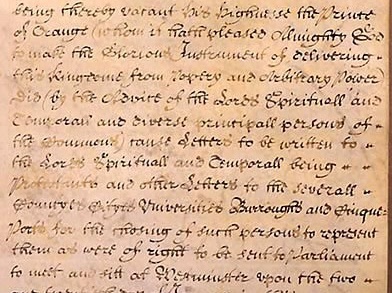 being thereby vacant His Highnesse the Prince
of Orange (whom it hath pleased Almighty God
to make the Glorious Instrument of delivering
this Kingdome from Popery and Arbitrary Power)
did (by the Advice of the Lords Spirituall and
Temporall and diverse principall persons of
the Commons) cause Letters to be written to
the Lords Spirituall and Temporall being
Protestants and other Letters to the severall
Countyes Cityes Universities Burroughs and Cinque
Ports for the choosing of such persons to represent
them as were of right to be sent to Parliament
to meet and sitt at Westminster upon the two